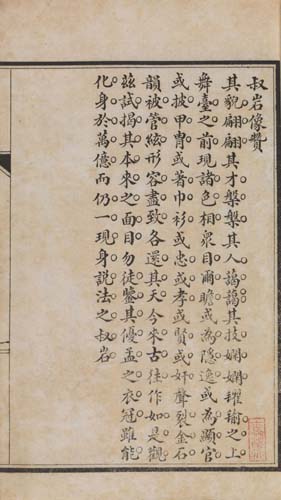 叔岩像贊
其貌翩翩其才槃槃其人藹藹其技嫻嫻氍毹之上
舞臺之前現諸色相衆目爾瞻或為隱逸或為顯官
或披甲冑或著巾衫或忠或孝或賢或奸聲裂金石
韻被管絃形容盡致各還其天今來古往作如是觀
茲試揭其本來之面目勿徒鑒其優孟之衣冠雖能
化身於萬億而仍一現身說法之叔岩